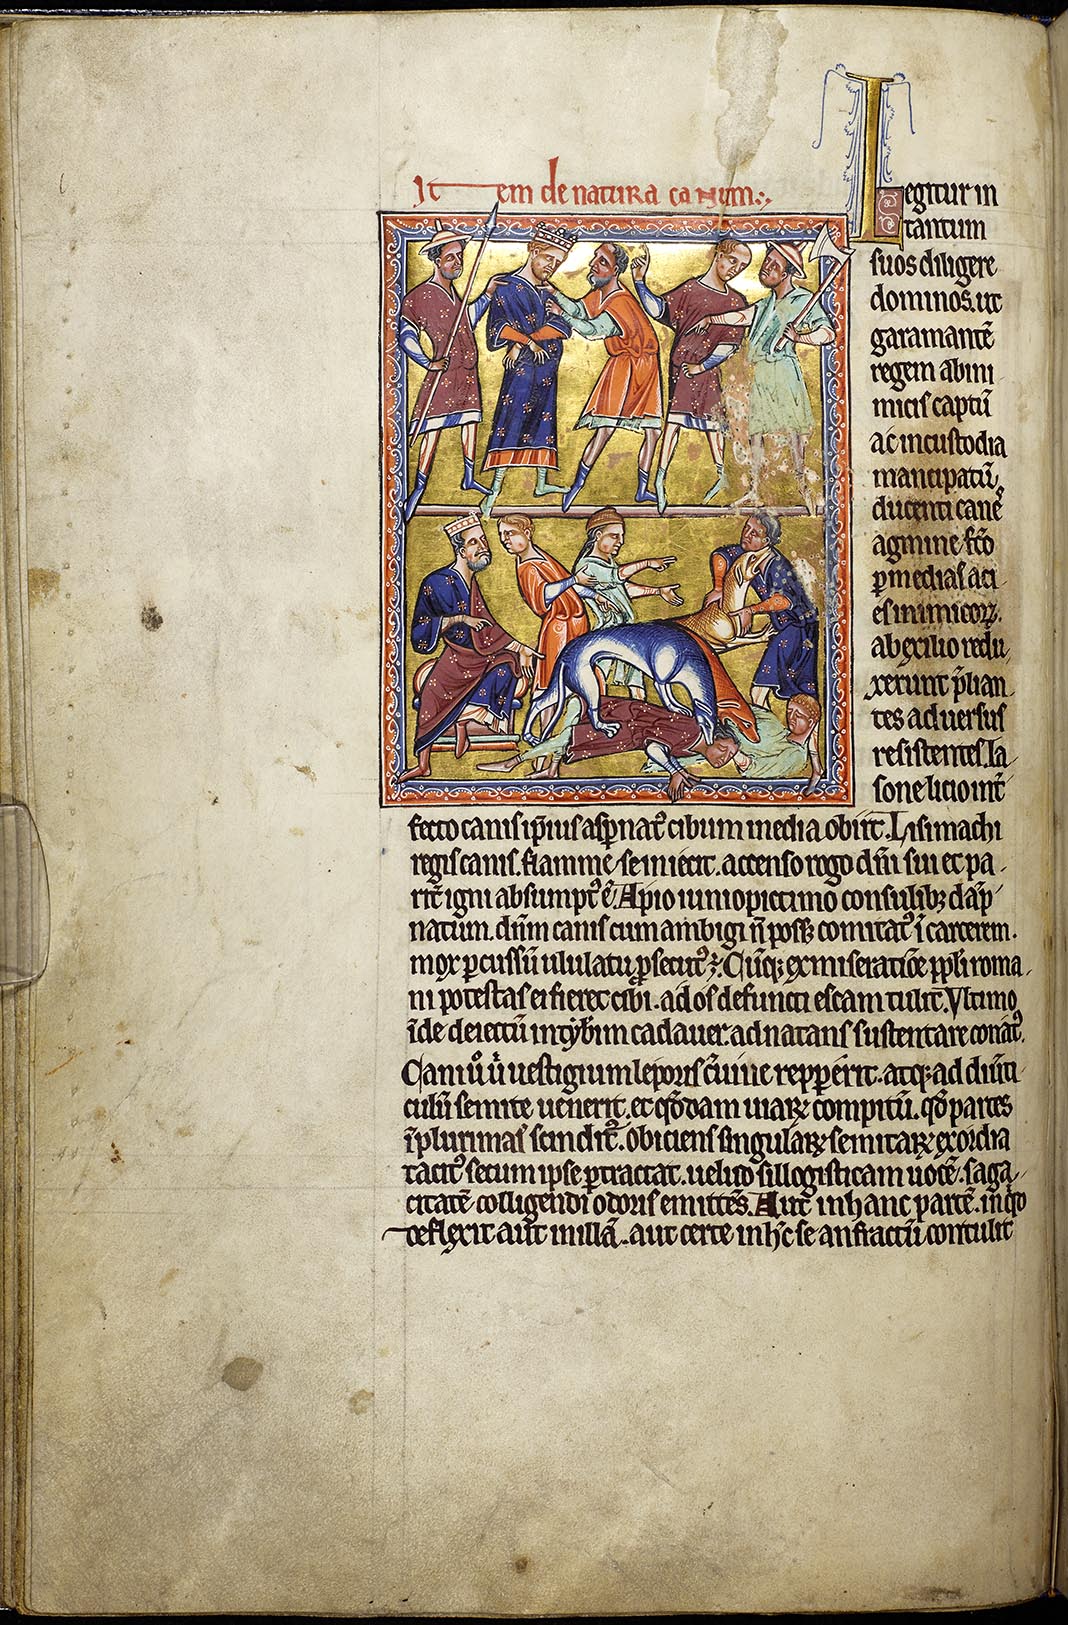 Item de natura canum
Legitur in
tantum
suos diligere
dominos. ut
garamantē
regem ab ini
micis captū
ac in custodia
mancipatū.
ducenti canē
agmine fc̄o
ꝑ medias aci
es inimicoꝝ.
ab exilio redu
xerunt p̄lian
tes adversus
resistentes. Ia
sone licio int̄
fecto canis ip̄ius asp̄nat᷒ cibum inedia obiit. Lisimachi
regis canis. flamme se iniecit. accenso rogo dn̄i sui et pa
rit̄ igni absumpt᷒ ē. Apio iunio pictinio consulibꝫ dāp
natum. dn̄m canis cum ambigi n̄ possꝫ comitat᷒ ī carcerem.
mox ꝑcussū ululatu ꝓsecut᷒ ꝫ. Cūqꝫ ex miseratiōe pp̄li roma
ni potestas ei fieret cibi. ad os defuncti escam tulit. Ultimo
īde deiectū in tyb̄im cadaver. adnatans sustentare conat᷒.
Canis v̊ u̇ vestigium leporis c̄uive reppererit. atqꝫ ad div̄ti
culū semite venerit. et qͦddam viaꝝ compitū. qͦd partes
ī plurimas scindit᷒. obiciens singulaꝝ semitaꝝ exordia
tacit᷒ secum ipse ꝑtractat. velud sillogisticam vocē. saga
citatē colligendi odoris emittēs. Aut in hanc partē. inqͥo
deflexit aut in illā. aut certe in hc̄ se anfractū contulit